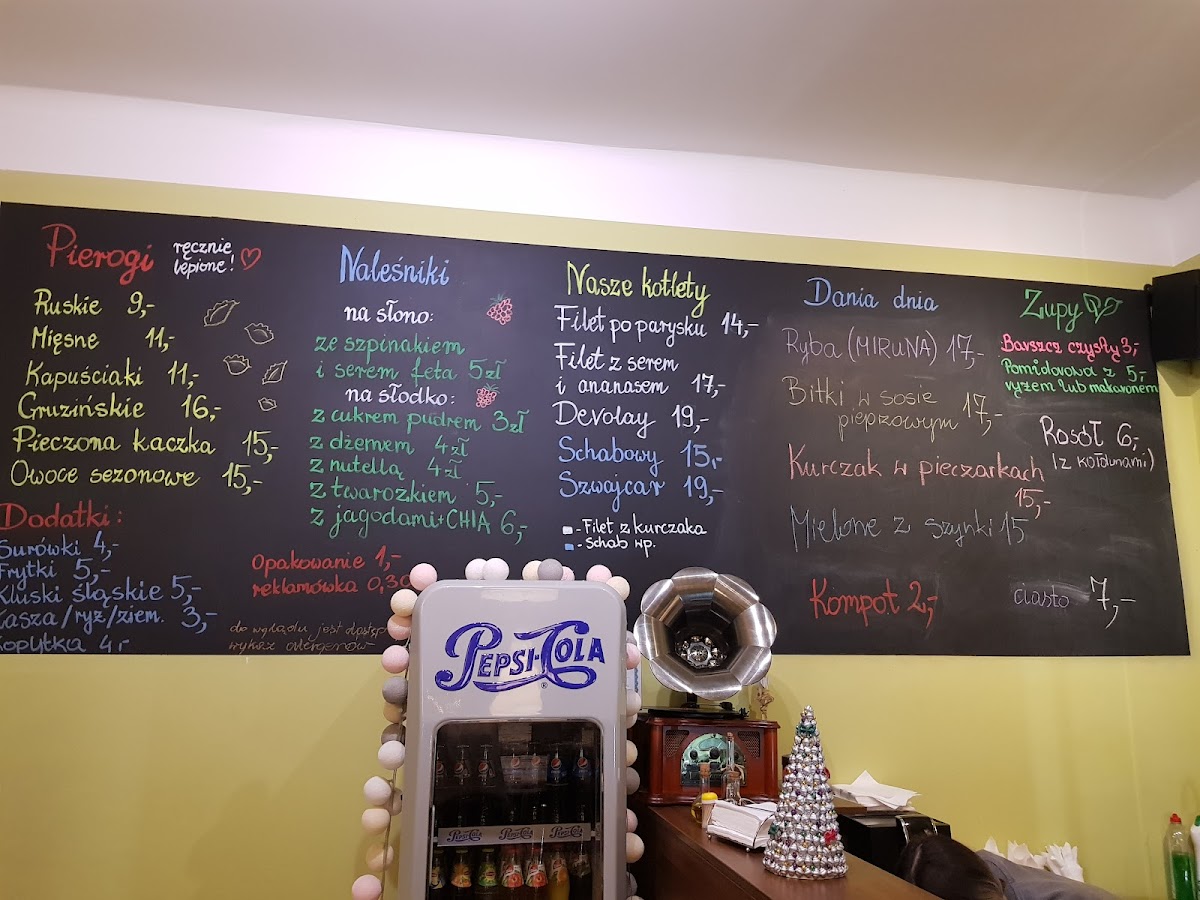 Pierogi
ręcznie
lepione!
Ruskie 9,-
Mięsne 11,-
Kapuściaki 11,-
Gruzińskie 16,-
Pieczona kaczka 15,-
Owoce sezonowe 15,-
Dodatki:
Surówki 4,-
Frytki 5,-
Kluski śląskie 5,-
Kasza/ryż/ziem. 3,-
Kopytka 4,-
Opakowanie 1,-
reklamówka 0,30
do wglądu jest dostęp
wykaz alergenów
Naleśniki
na słono:
ze szpinakiem
i serem feta 5 zł
na słodko:
z cukrem pudrem 3 zł
z dżemem 4 zł
z nutellą 4 zł
z twarożkiem 5,-
z jagodami+CHIA 6,-
Nasze kotlety
Filet po parysku 14,-
Filet z serem
i ananasem 17,-
Devolay 19,-
Schabowy 15,-
Szwajcar 19,-
- Filet z kurczaka
- Schab wp.
Dania dnia
Ryba (MIRUNA) 17,-
Bitki w sosie
pieprzowym 17,-
Kurczak w pieczarkach
15,-
Mielone z szynki 15
Kompot 2,-
Zupy
Barszcz czysty 3,-
Pomidorowa z 5,-
ryżem lub makaronem
Rosół 6,-
(z kołdunami)
ciasto 7,-
PEPSI-COLA
PEPSI-COLA PEPSI-COLA PEPSI-COLA